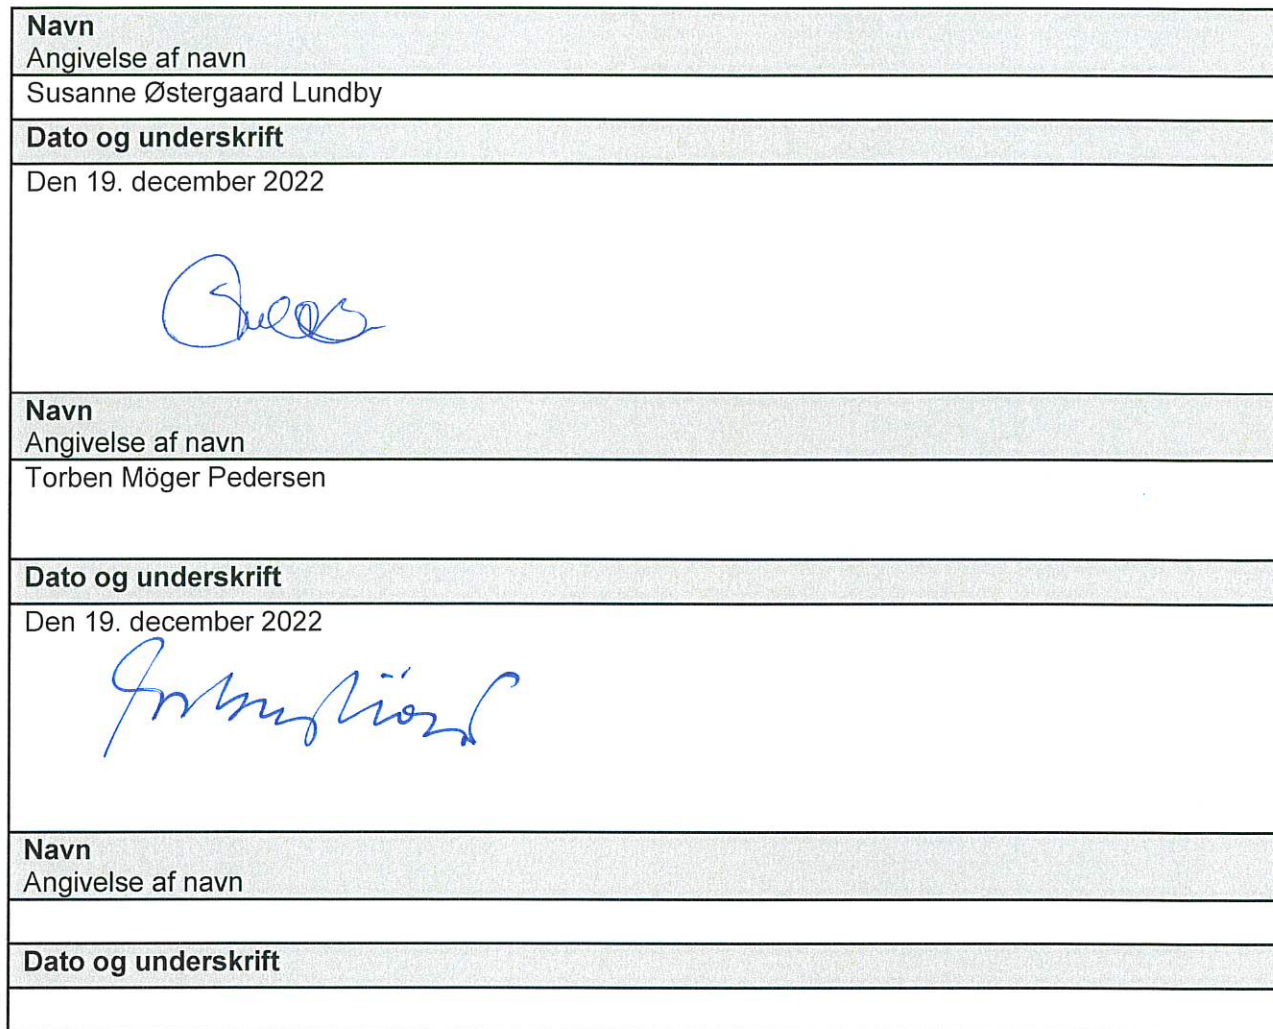 Navn
Angivelse af navn
Susanne Østergaard Lundby
Dato og underskrift
Den 19. december 2022
Navn
Angivelse af navn
Torben Möger Pedersen
Dato og underskrift
Den 19. december 2022
Navn
Angivelse af navn
Dato og underskrift